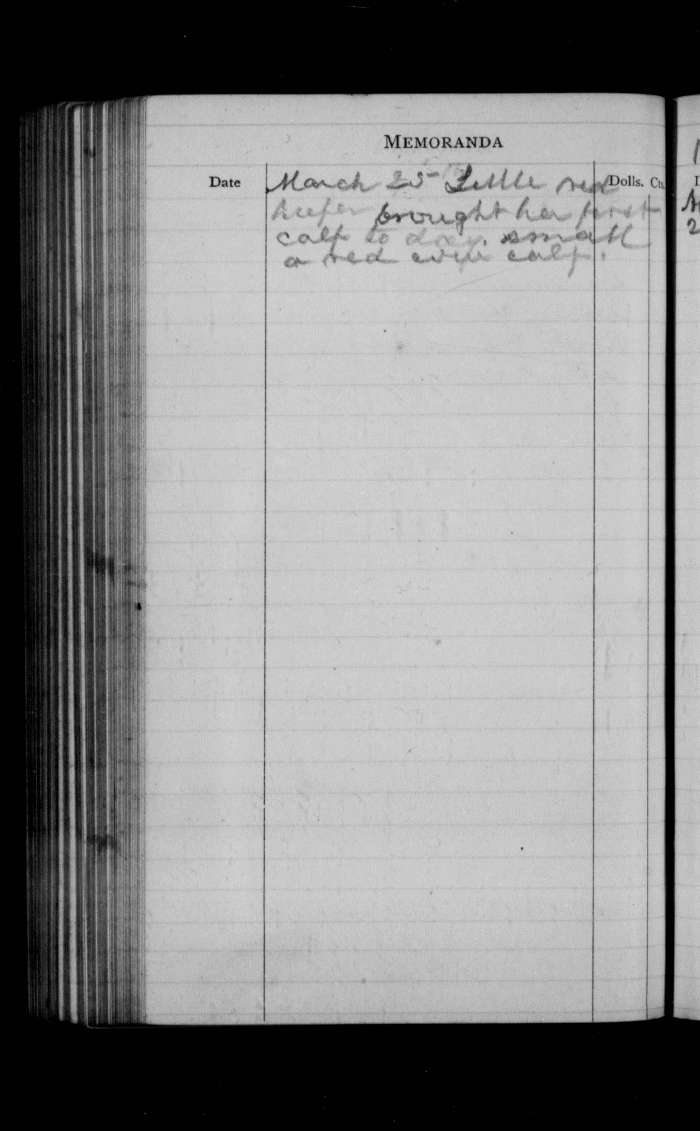 MEMORANDA
Date
Dolls. Cts.
March 25 Little red
heifer brought her first
calf to day. small
a red calf.